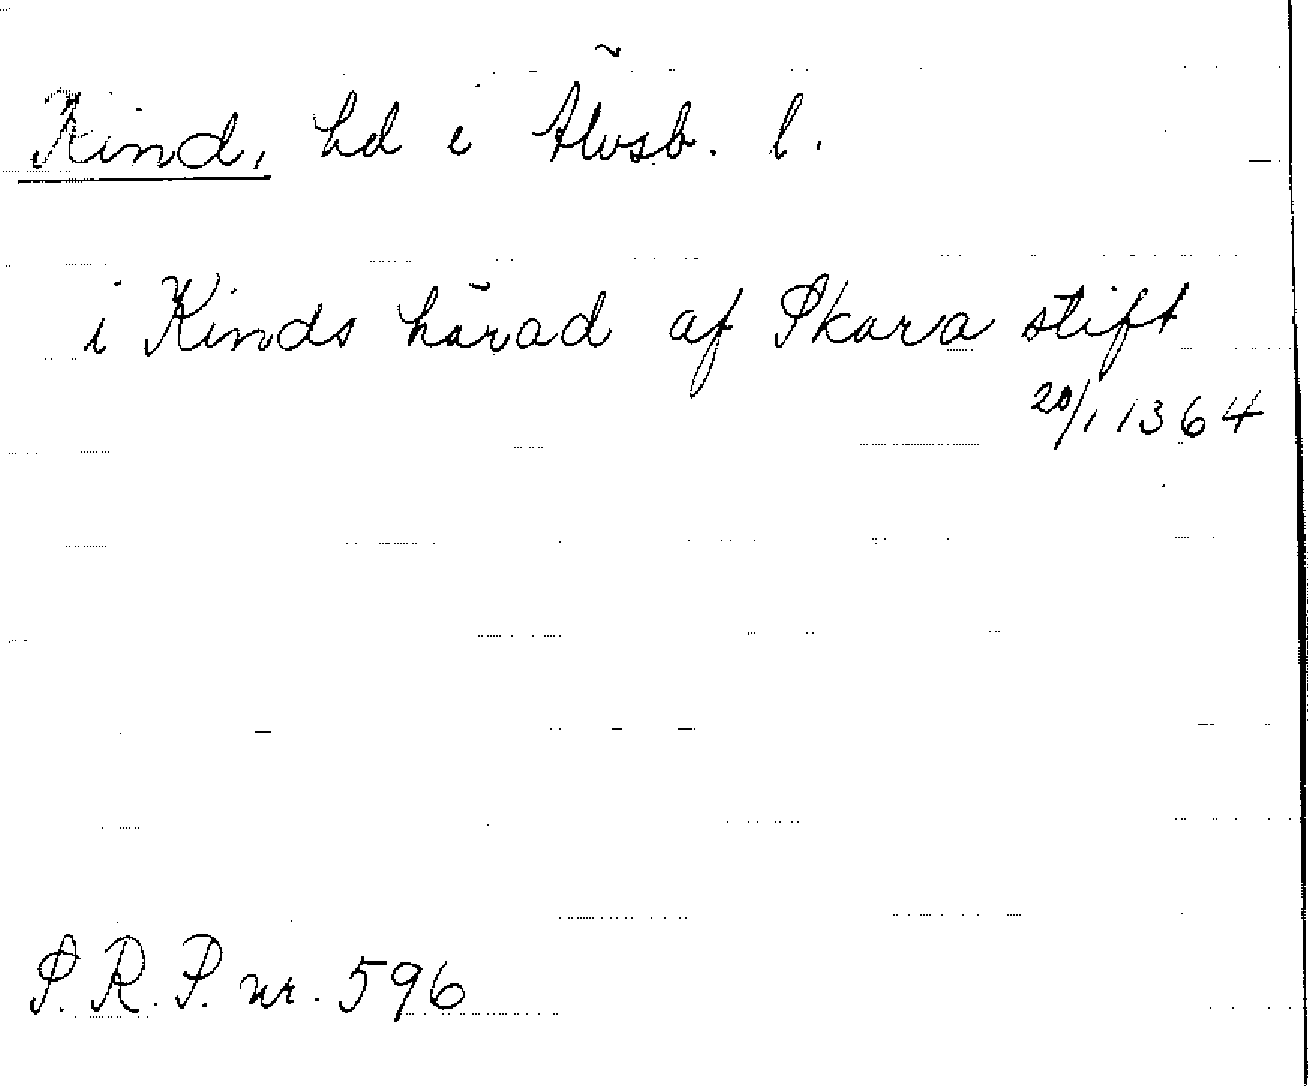 Kind, hd i Älvsb. l.
i Kinds härad af Skara stift
20/1 1364
S. R. P. nr. 596